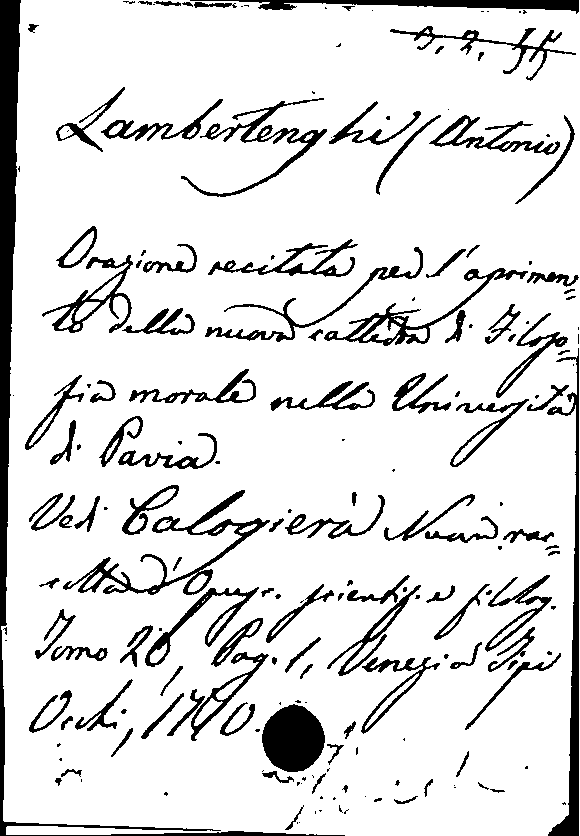 Lambertenghi (Antonio)
Orazione recitata per l'aprimen=
to della nuova cattedra di Filoso=
fia morale nella Università
di Pavia.
Vedi Calogierà Nuova rac=
colta d'Opusc. scientif. e filolog.
Tomo 20, Pag. 1, Venezia Tipi
Occhi, 1770.